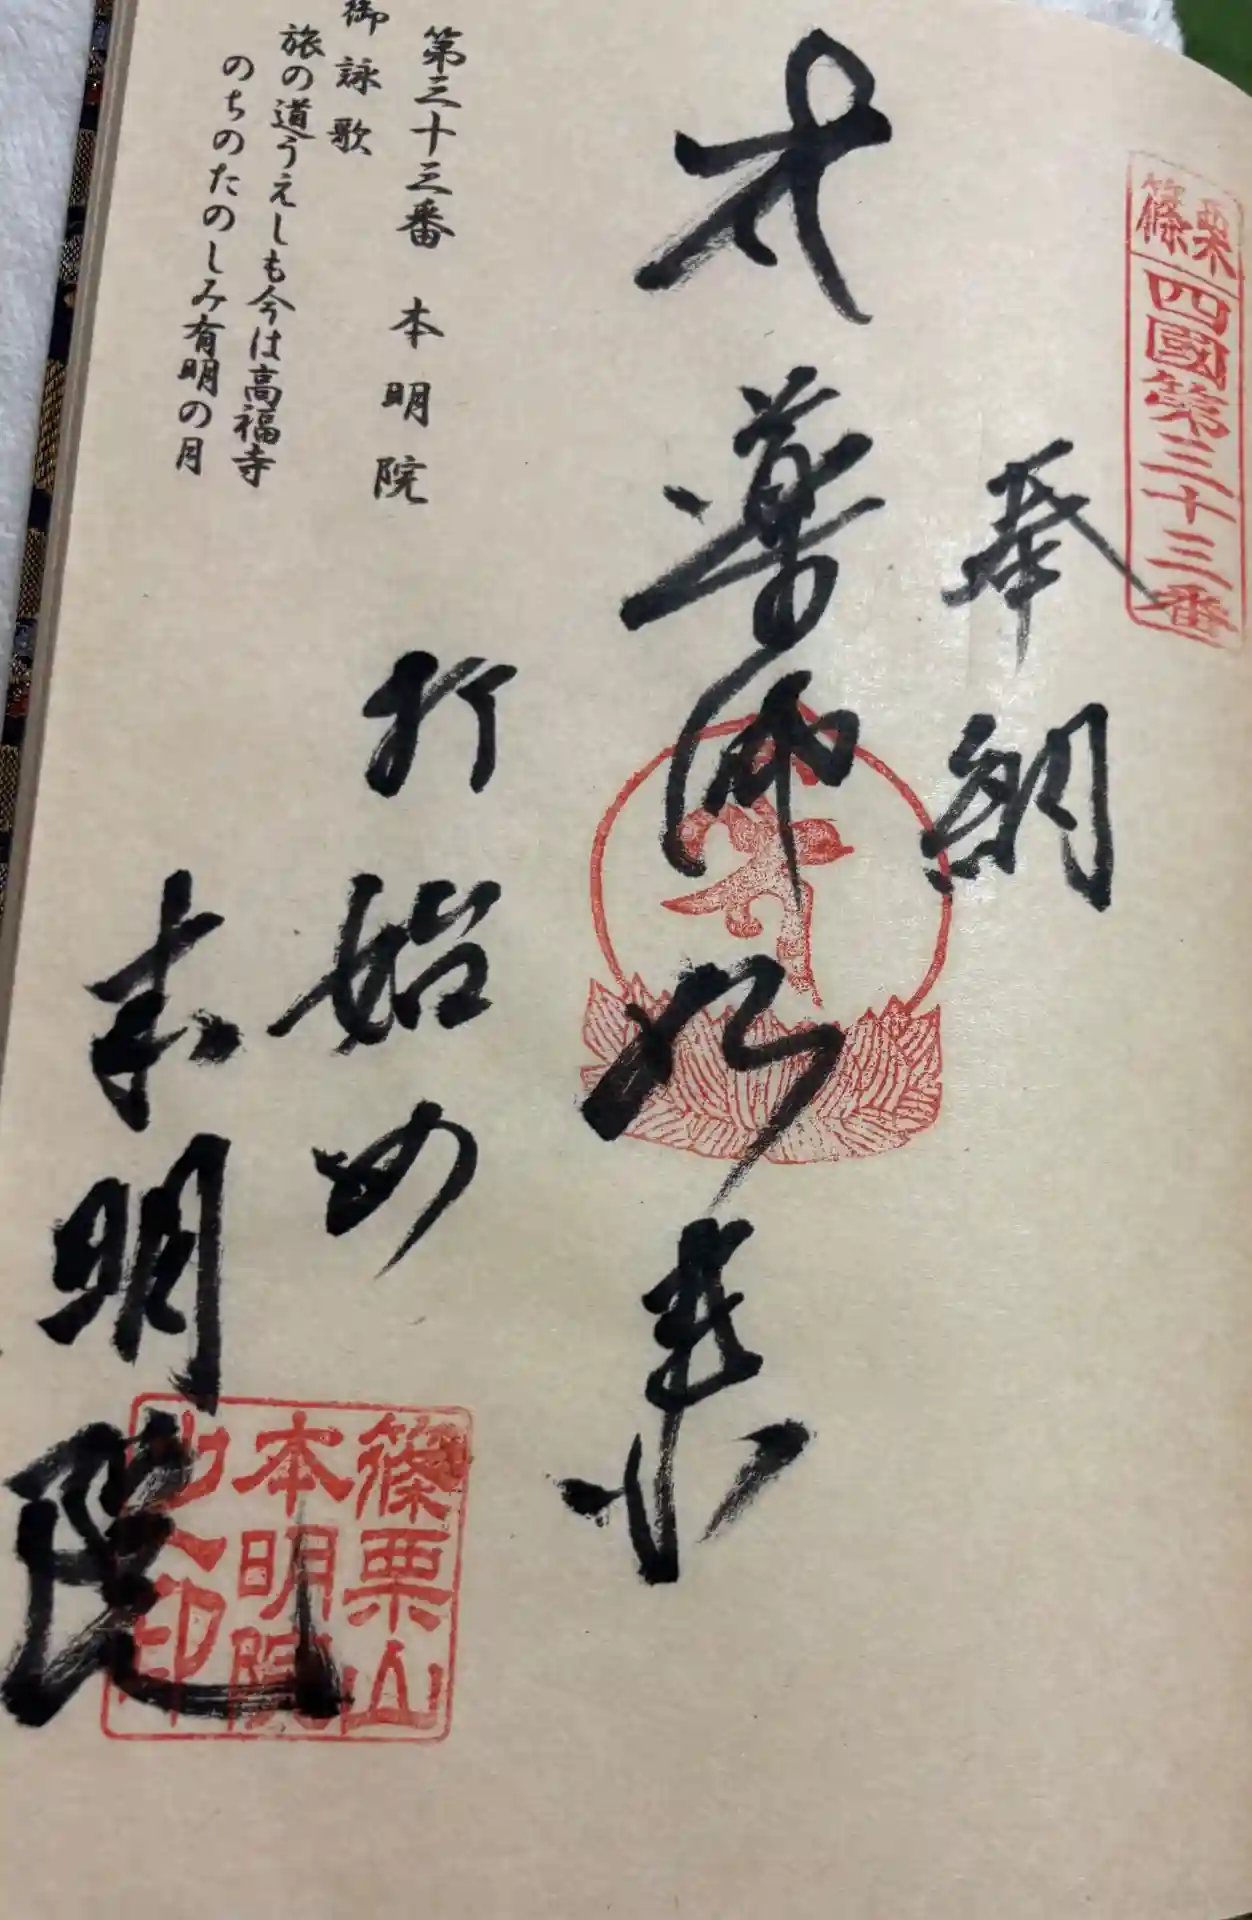 篠栗
四國第三十三番
奉
薬師如来
打始め
本明院
篠栗山
本明院
之印
第三十三番 本明院
御詠歌
旅の道うえしも今は高福寺
のちのたのしみ有明の月